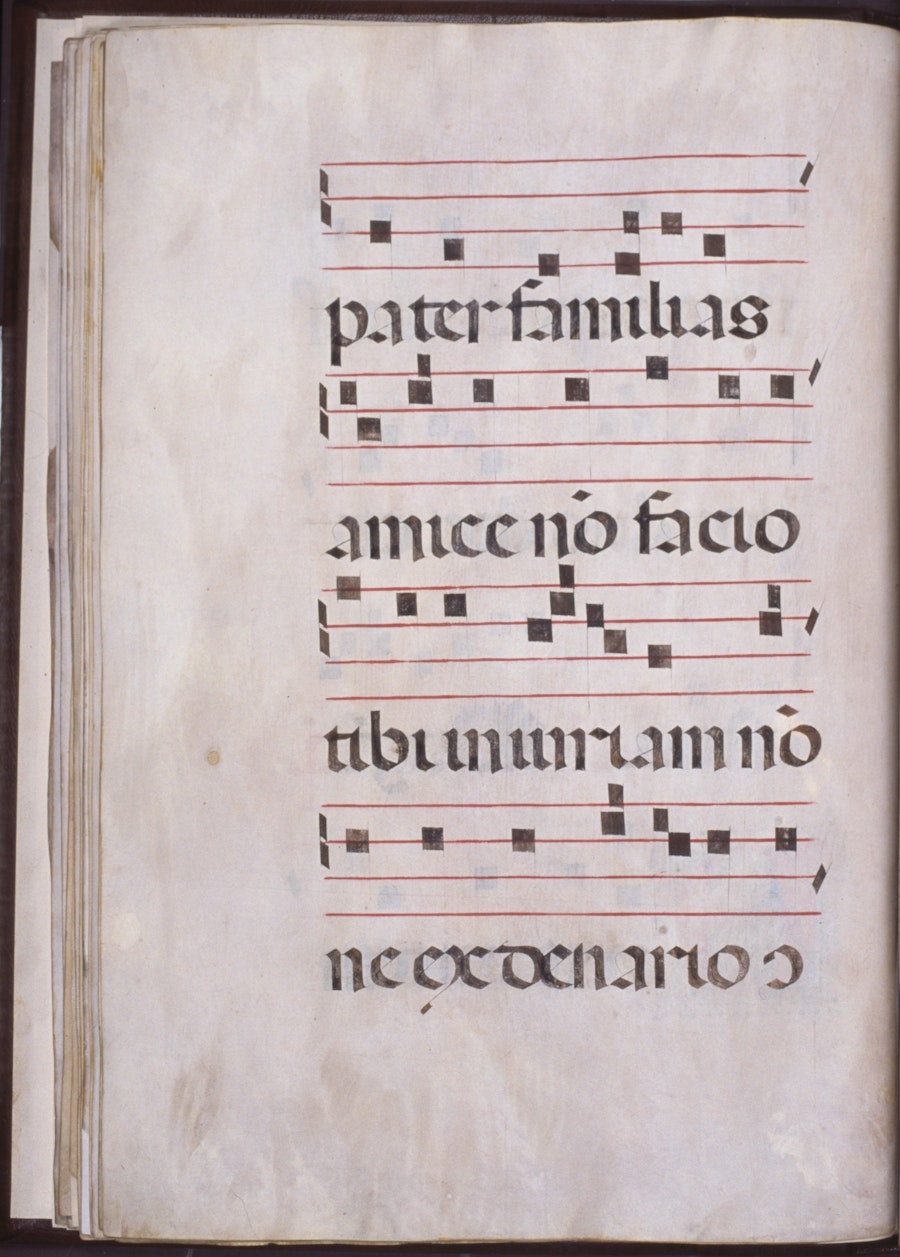 paterfamilias
amice nō facio
tibi iniuriam nō
ne ex denario ↄ